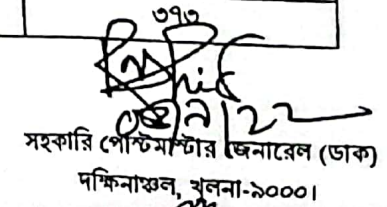 ৩৭৩
সহকারি পোস্টমাস্টার জেনারেল (ডাক)
দক্ষিনাঞ্চল, খুলনা-৯০০০।